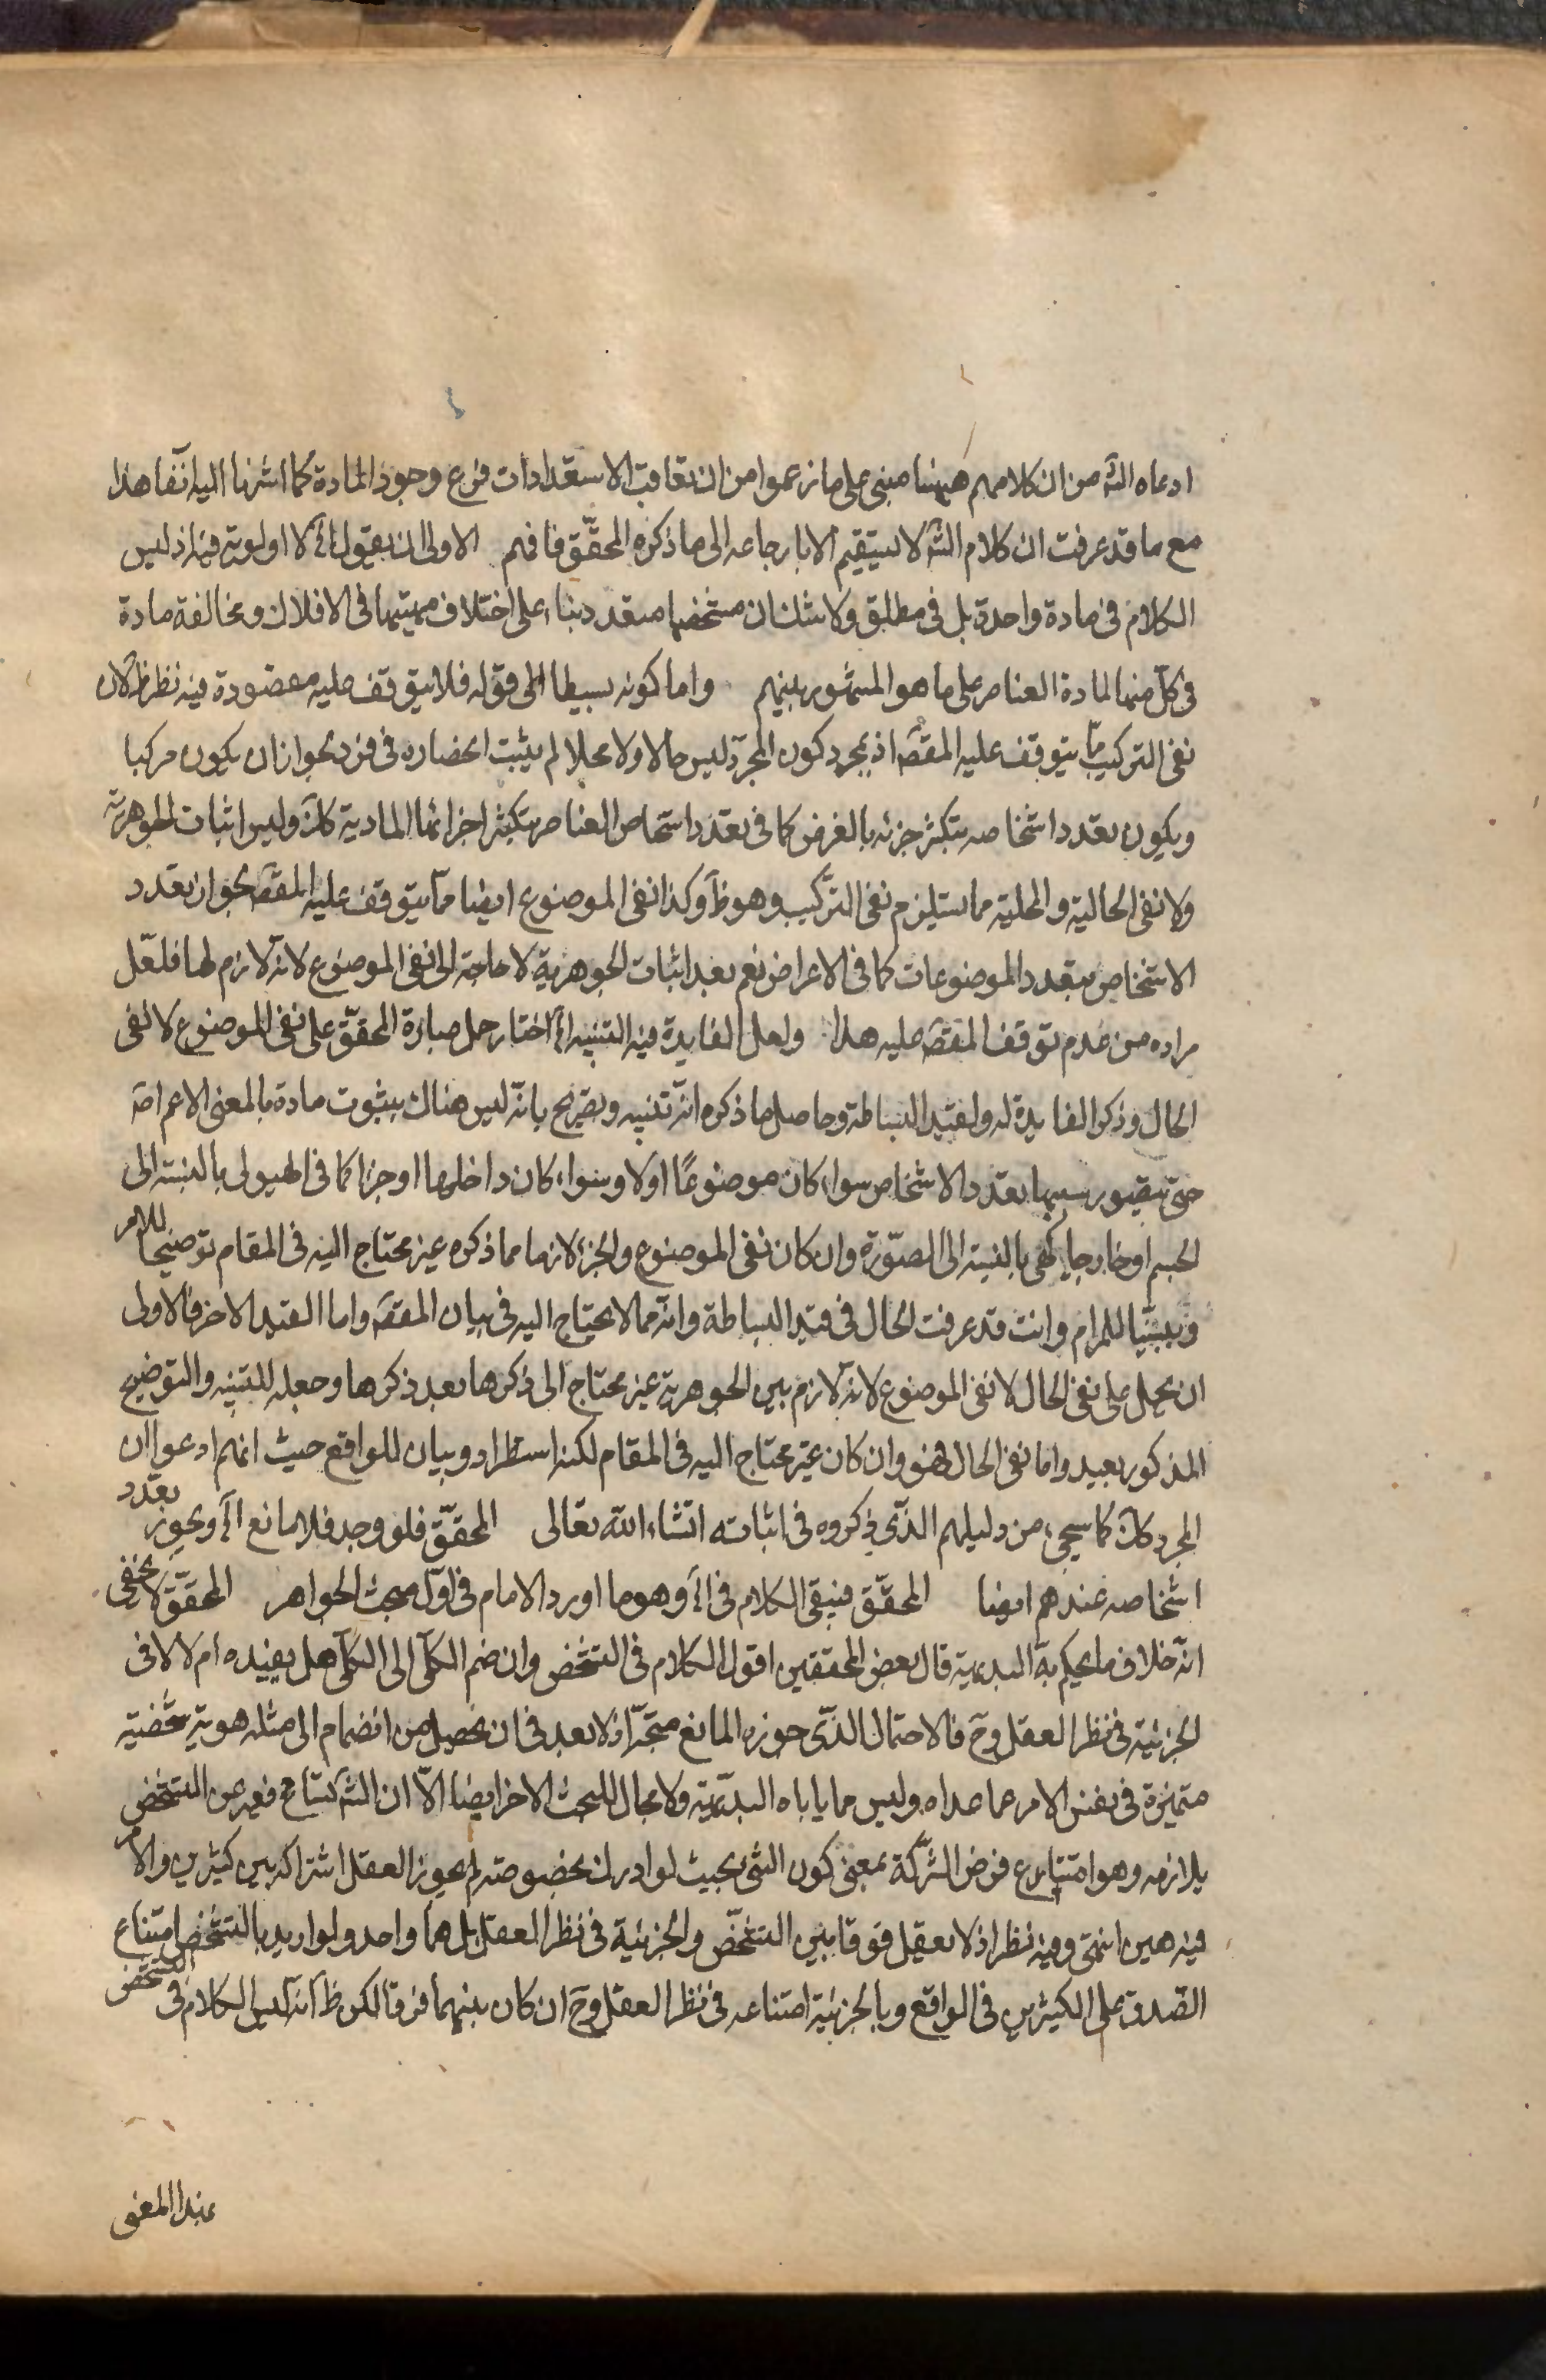 ادعاه الشه من ان كلامهم ههنا مبنى على ما زعموا من ان تعاقب الاستعدادات فرع وجود المادة كما اشرنا اليه آنفا هذا
مع ما قد عرفت ان كلام الشه لا يستقيم الا بارجاعه الى ما ذكره المحقق فافهم الاولى ان يقول الخ لا اولوية فيه اذ ليس
الكلام فى مادة واحدة بل فى مطلق ولا شك ان مشخصها متعدد بناء على اختلاف مهيتها فى الافلاك ومخالفة مادة
فى كل منها لمادة العناصر على ما هو المشهور بينهم واما كونه بسيطا الى قوله فلا يتوقف عليه مقصوده فيه نظر ظ لان
نفى التركيب مما يتوقف عليه المقصه اذ بمجرد كون المجرد ليس حالا ولا محلا لم يثبت انحصاره فى فرد لجواز ان يكون مركبا
ويكون تعدد اشخاصه بتكثر جزئه بالغرض كما فى تعدد اشخاص العناصر بتكثر اجزائها المادية كك وليس اثبات الجوهرية
ولا نفى الحالية والمحلية مما يستلزم نفى التركيب وهو ظ وكذا نفى الموضوع ايضا مما يتوقف عليه المقصه لجواز تعدد
الاشخاص بتعدد الموضوعات كما فى الاعراض نعم بعد اثبات الجوهرية لا حاجة الى نفى الموضوع لانه لازم لها فلعل
مراده من عدم توقف المقصه عليه هذا ولعل الفايدة فيه التنبيه الخ اختار حمل عبارة المحقق على نفى الموضوع لا نفى
الحال وذكر الفايدة له ولقيد البساطة وحاصل ما ذكره انه تنبيه وتصريح بانه ليس هناك ثبوت مادة بالمعنى الاعم اصه
حتى يتصور بسببها تعدد الاشخاص سواء كان موضوعا اولا وسواء كان داخلها او جزا كما فى الهيولى بالنسبة الى
الجسم او خارجا كهى بالنسبة الى الصورة وان كان نفى الموضوع والجزء لازما مما ذكره غير محتاج اليه فى المقام توضيحا للامر
وتبيينا للمرام وانت قد عرفت الحال فى قيد البساطة وانه مما لا يحتاج اليه فى بيان المقصه واما القيد الاخر فالاولى
ان يحمل على نفى الحال لا نفى الموضوع لانه لازم بين الجوهرية غير محتاج الى ذكرها بعد ذكرها وجعله للتنبيه والتوضيح
المذكور بعيد واما نفى الحال فهو وان كان غير محتاج اليه فى المقام لكنه استطراد وبيان للواقع حيث انهم ادعوا ان
المجرد كك كما سيجىء من دليلهم الذى ذكروه فى اثباته انشاء الله تعالى المحقق فلو وجد فلا مانع الخ ويجوز تعدد
اشخاصه عندهم ايضا المحقق فيبقى الكلام فى الخ وهو ما اورد الامام فى اول مبحث الجواهر المحقق لا يخفى
انه خلاف ما يحكم به البديهية قال بعض المحققين اقول الكلام فى التشخص وان ضم الكلى الى الكلى هل يفيده ام لا لا فى
الجزئية فى نظر العقل وح فالاحتمال الذى جوزه المانع متجه اذ لا بعد فى ان يحصل من انضمام الى مثله هوية شخصية
متميزة فى نفس الامر عما عداه وليس مما ياباه البديهية ولا مجال للبحث الاخر ايضا الا ان الشه تسامح فعبر عن التشخص
بلازمه وهو امتناع فرض الشركة بمعنى كون الشى بحيث لو ادرك بخصوصه لم يجوز العقل اشتراكه بين كثيرين والامر
فيه هين انتهى وفيه نظر اذ لا تعقل فرقا بين التشخص والجزئية فى نظر العقل بل هما واحد ولو اريد بالتشخص امتناع
الصدق على الكثيرين فى الواقع وبالجزئية امتناعه فى نظر العقل وح ان كان بينهما فرقا لكن ظ انه ليس الكلام فى التشخص
بهذا المعنى